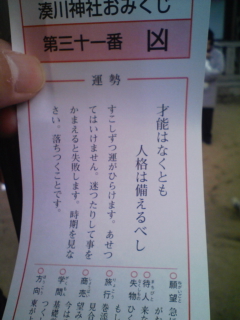 湊川神社おみくじ
第三十一番 凶
運勢
才能はなくとも
人格は備えるべし
すこしずつ運がひらけます。あせっ
てはいけません。迷ったりして事を
かまえると失敗します。時期を見な
さい。落ちつくことです。
願望
待人
失物
旅行
商売
学問
方向